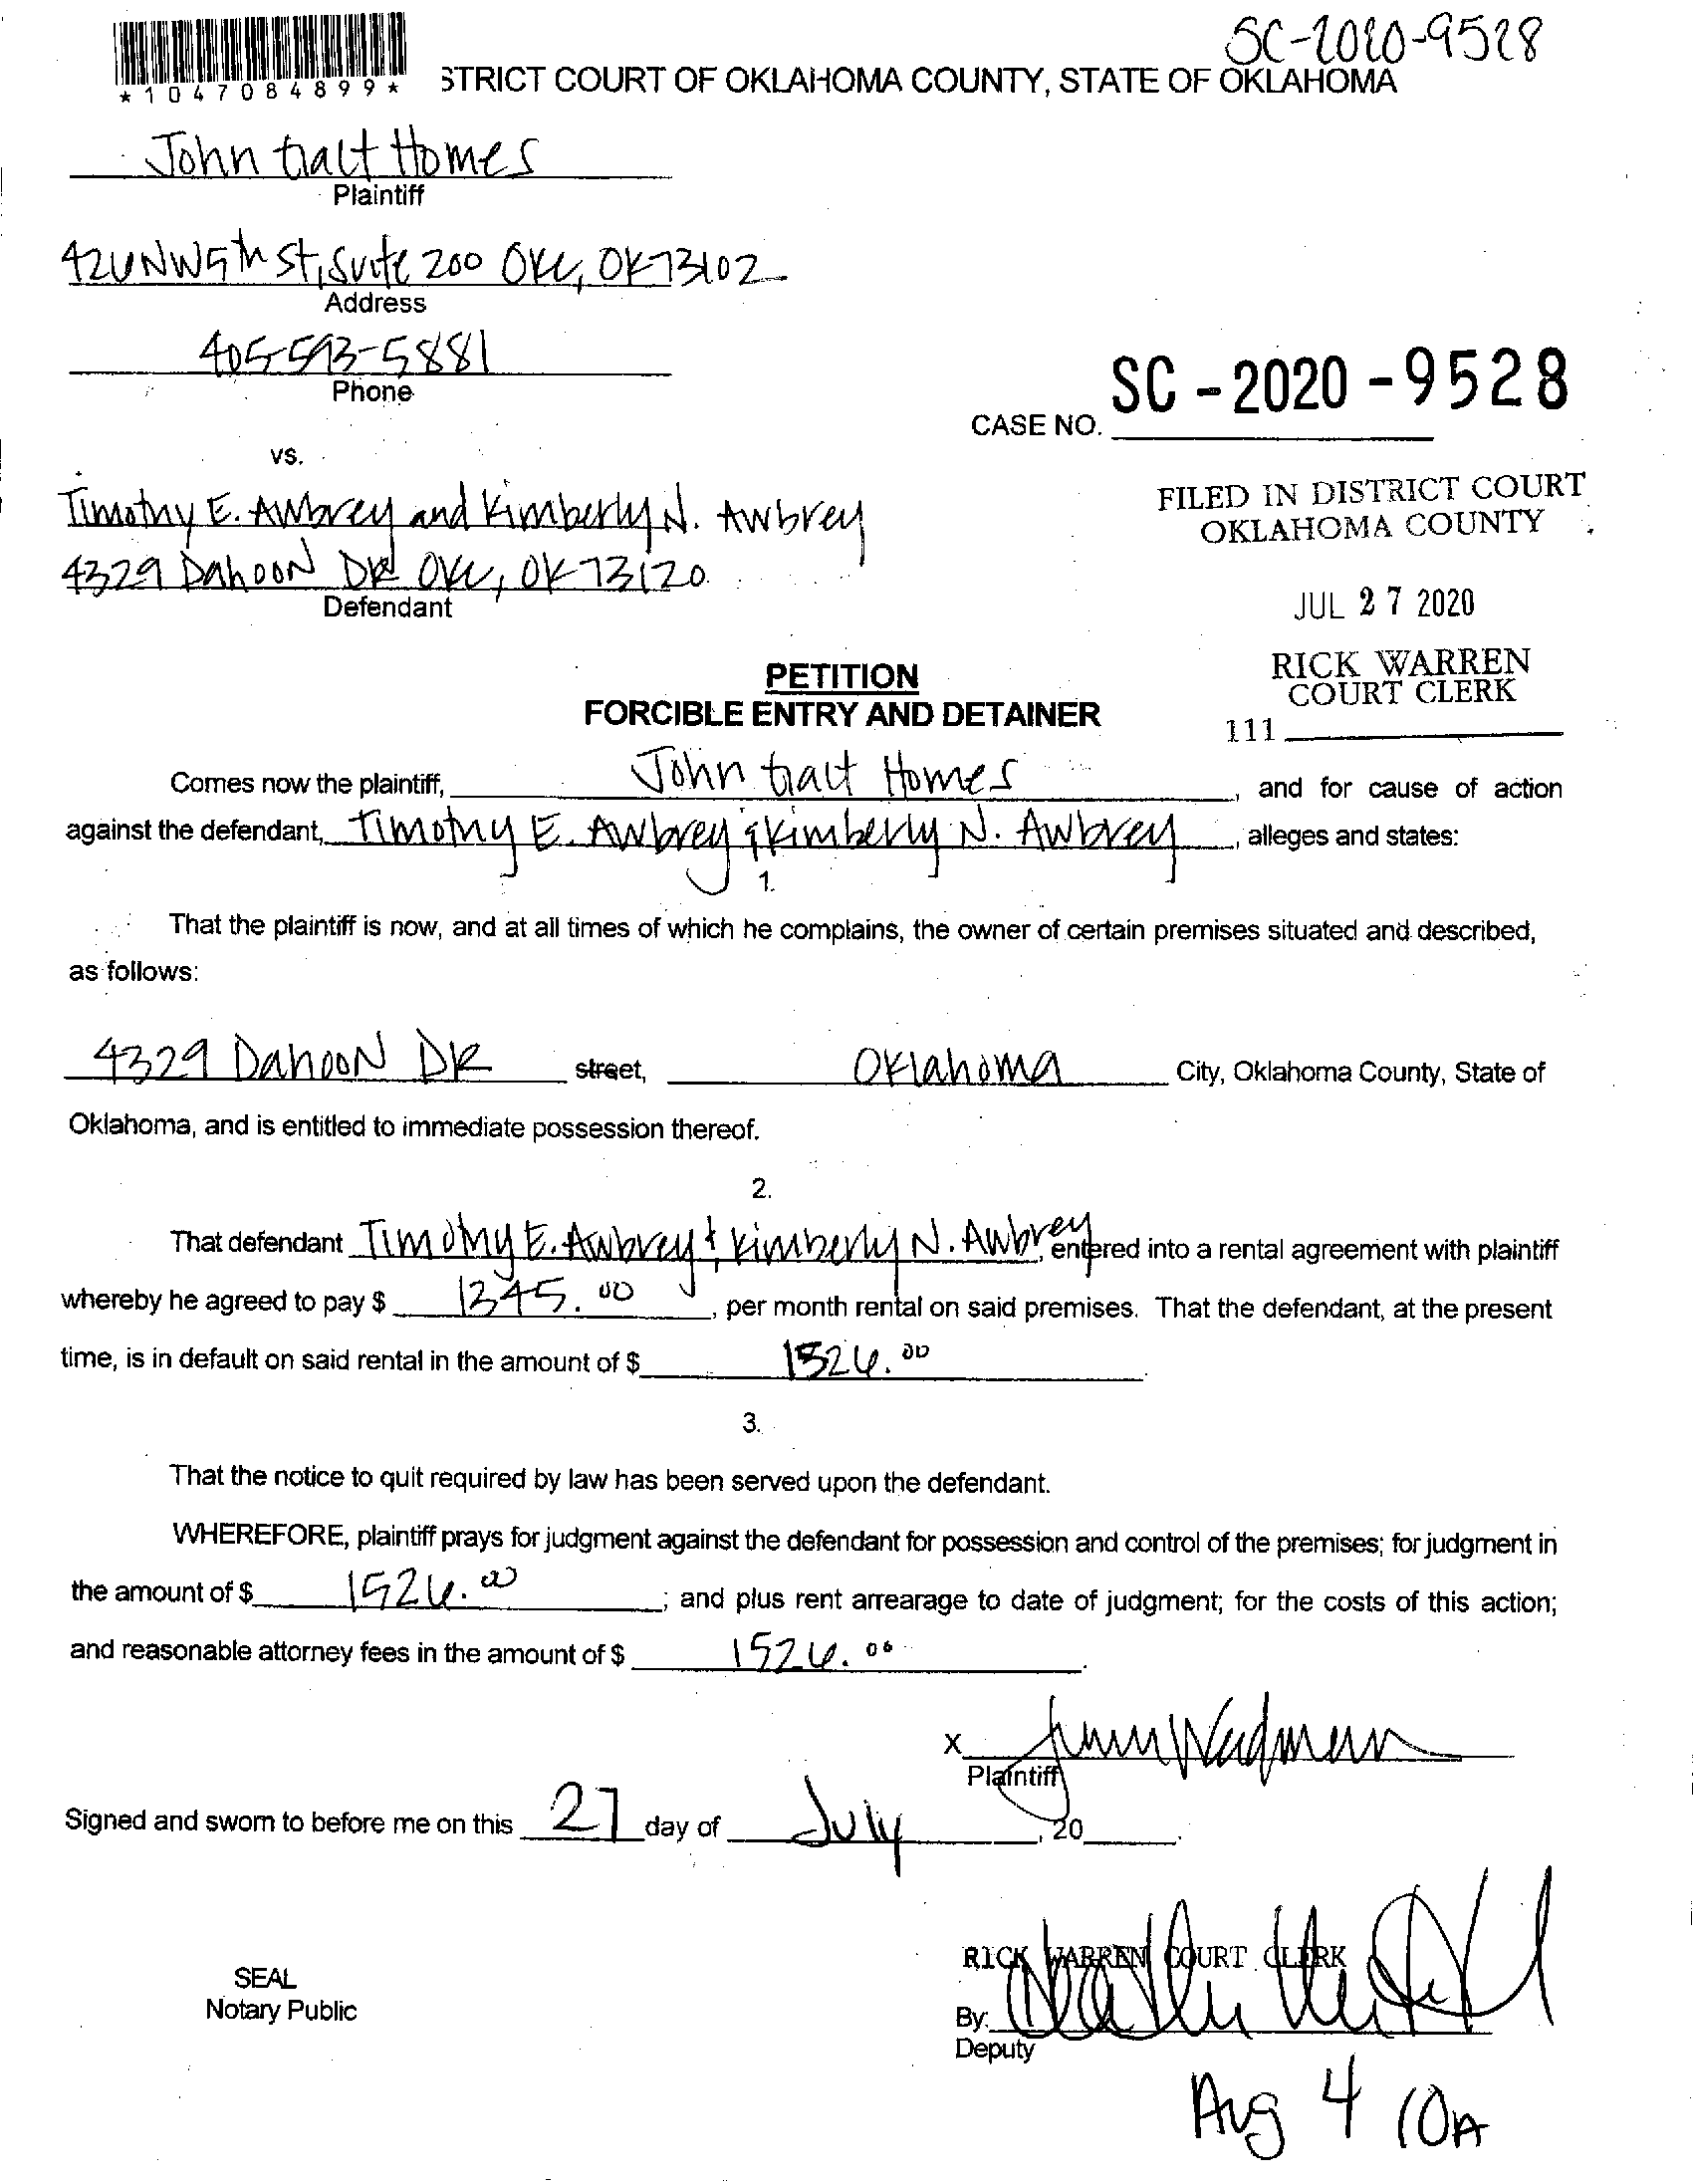 SC-2020-9528
*1047084899* STRICT COURT OF OKLAHOMA COUNTY, STATE OF OKLAHOMA
John Galt Homes
Plaintiff
420 NW 5th St, Suite 200 OKC, OK 73102
Address
405-593-5881
Phone
SC-2020-9528
CASE NO.
vs.
Timothy E. Awbrey and Kimberly N. Awbrey
4329 Dahoon DR OKC, OK 73120
Defendant
FILED IN DISTRICT COURT
OKLAHOMA COUNTY
JUL 27 2020
RICK WARREN
COURT CLERK
111
PETITION
FORCIBLE ENTRY AND DETAINER
Comes now the plaintiff, John Galt Homes, and for cause of action
against the defendant, Timothy E. Awbrey & Kimberly N. Awbrey, alleges and states:
1.
That the plaintiff is now, and at all times of which he complains, the owner of certain premises situated and described,
as follows:
4329 Dahoon DR street, Oklahoma City, Oklahoma County, State of
Oklahoma, and is entitled to immediate possession thereof.
2.
That defendant Timothy E. Awbrey & Kimberly N. Awbrey, entered into a rental agreement with plaintiff
whereby he agreed to pay $ 1345.00, per month rental on said premises. That the defendant, at the present
time, is in default on said rental in the amount of $ 1526.00.
3.
That the notice to quit required by law has been served upon the defendant.
WHEREFORE, plaintiff prays for judgment against the defendant for possession and control of the premises; for judgment in
the amount of $ 1526.00; and plus rent arrearage to date of judgment; for the costs of this action;
and reasonable attorney fees in the amount of $ 1526.00.
X
Plaintiff
Signed and sworn to before me on this 27 day of July, 20
SEAL
Notary Public
RICK WARREN COURT CLERK
By:
Deputy
Aug 4 10A